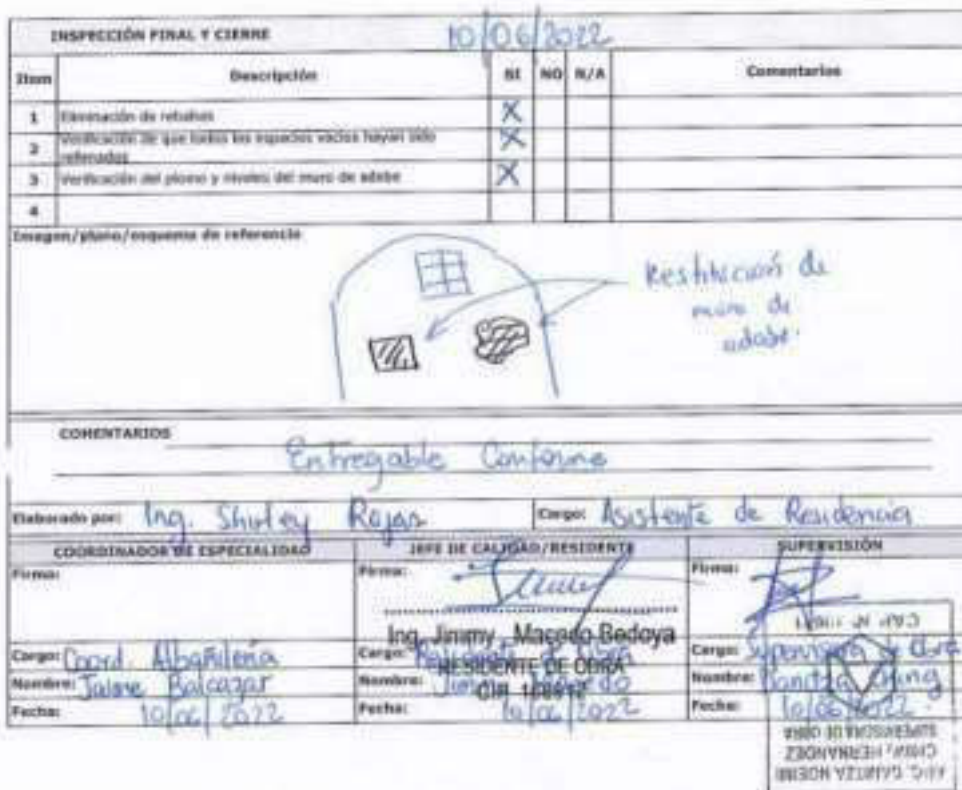 INSPECCIÓN FINAL Y CIERRE 10/06/2022
Item Descripción SI NO N/A Comentarios
1 Eliminación de rebabas X
2 Verificación de que todos los espacios vacíos hayan sido rellenados X
3 Verificación del plomo y niveles del muro de adobe X
4
Imagen/plano/esquema de referencia
Restitución de
muro de
adobe.
COMENTARIOS
Entregable Conforme
Elaborado por: Ing. Shirley Rojas Cargo: Asistente de Residencia
COORDINADOR DE ESPECIALIDAD JEFE DE CALIDAD/RESIDENTE SUPERVISIÓN
Firma: Firma: Firma:
Ing. Jimmy Macedo Bedoya
RESIDENTE DE OBRA
CIP
Cargo: Coord. Albañilería Cargo: Residente de Obra Cargo: Supervisora de Obra
Nombre: Jaime Balcazar Nombre: Jimmy Macedo Nombre: Danitza Ching
Fecha: 10/06/2022 Fecha: 10/06/2022 Fecha: 10/06/2022
SUPERVISORA DE OBRA
HERNANDEZ
ARQ. DANITZA NOEMI